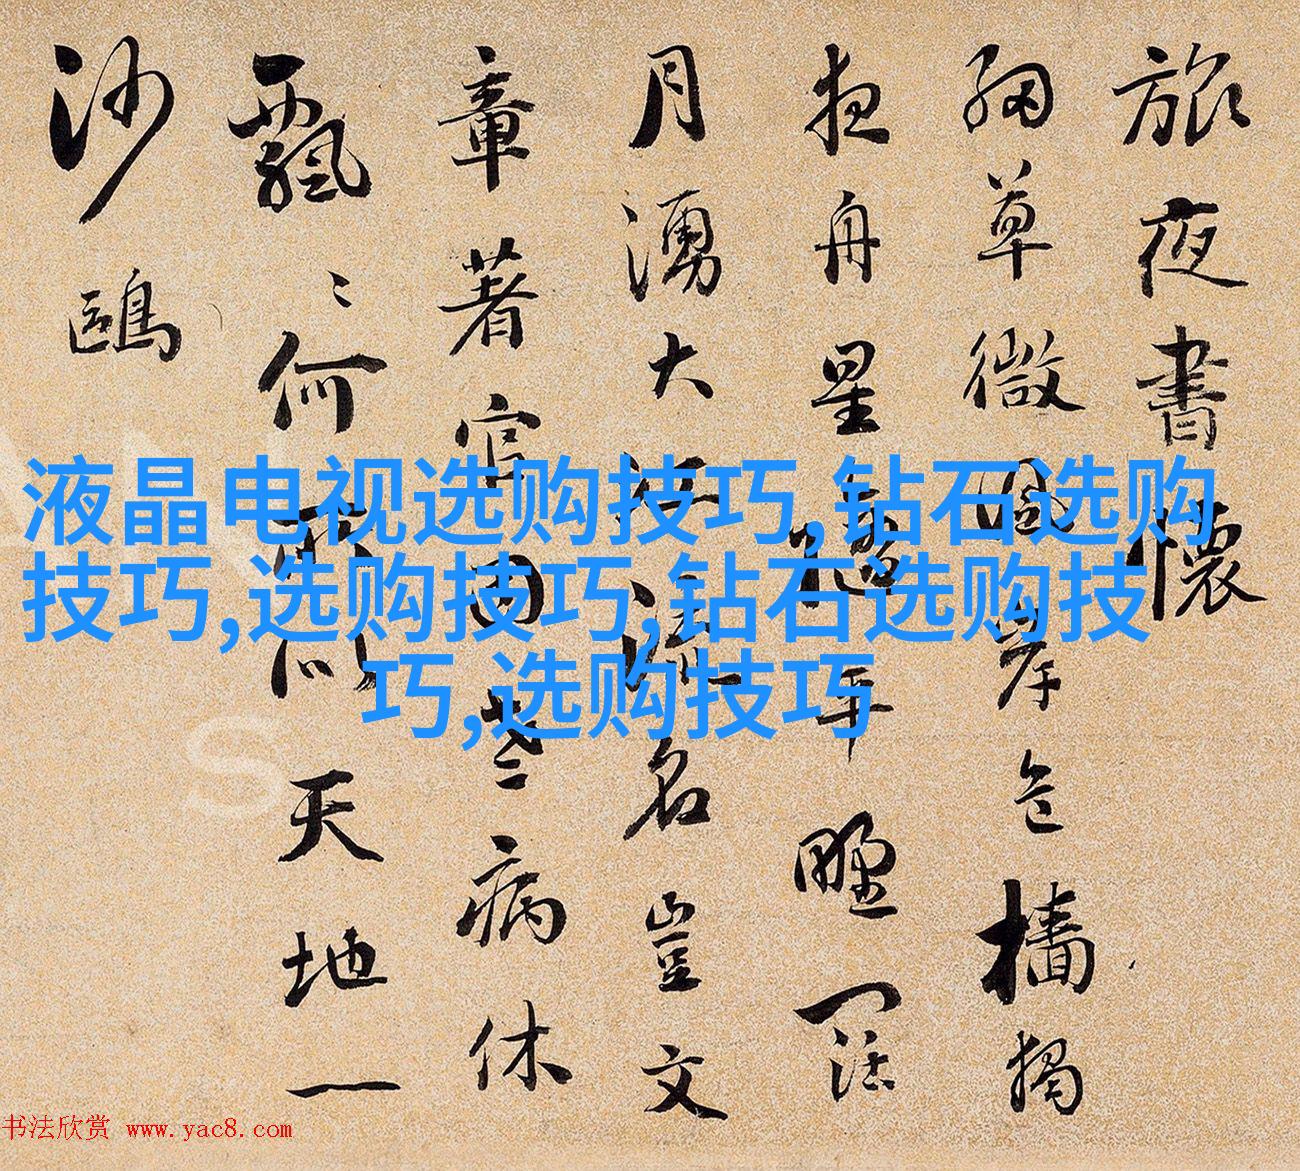 旅夜書懷
細草微風岸危檣獨
夜舟星隨平野闊
月湧大江流名豈文
章著官因老病休
飄〻何所似天地一
沙鷗
液晶电视选购技巧,钻石选购
技巧,选购技巧,钻石选购技
巧,选购技巧
书法欣赏 www.yac8.com